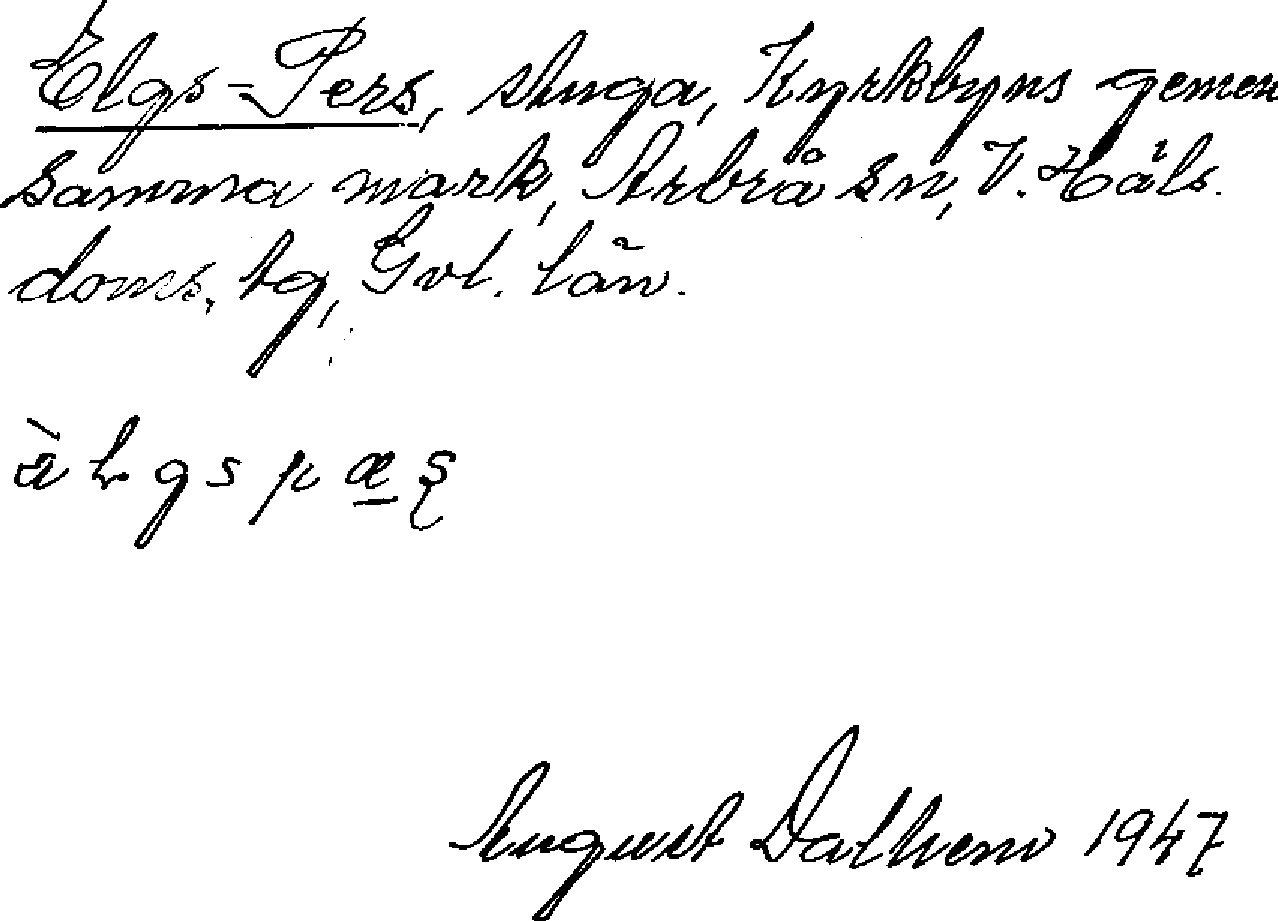 Elgs-Pers, stuga, Kyrkbyns gemen
samma mark, Arbrå sn, V. Häls.
doms. tg, Gvl. län.
August Dalhem 1947